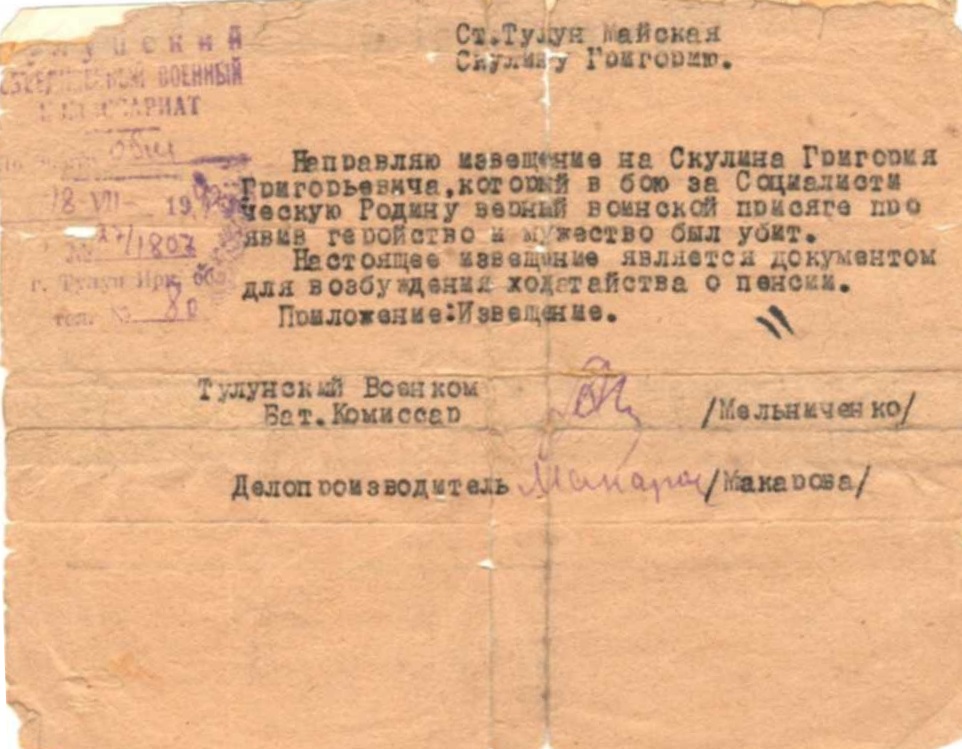 Ст.Тулун Майская
Скулину Григорию.
ВОЕННЫЙ
Общ
18 VII- 19
/1807
г. Тулун Ирк. об
тел. № 80
Направляю извещение на Скулина Григория
Григорьевича,который в бою за Социалисти
ческую Родину верный воинской присяге про
явив геройство и мужество был убит.
Настоящее извещение является документом
для возбуждения ходатайства о пенсии.
Приложение:Извещение.
Тулунский Военком
Бат.Комиссар /Мельниченко/
Делопроизводитель Макаров /Макарова/